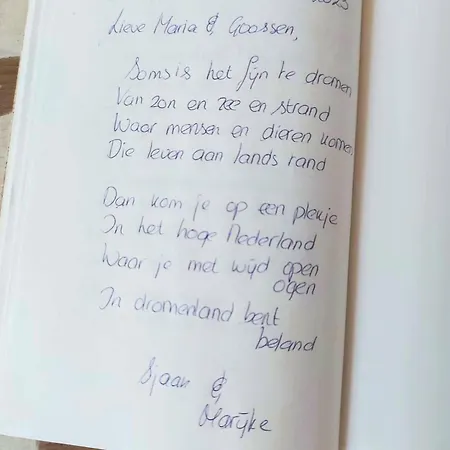 2023
Lieve Maria & Goossen,
Soms is het fijn te dromen
Van zon en zee en strand
Waar mensen en dieren komen
Die leven aan lands rand
Dan kom je op een plekje
In het hoge Nederland
Waar je met wijd open
ogen
In dromenland bent
beland
Sjaan &
Marijke